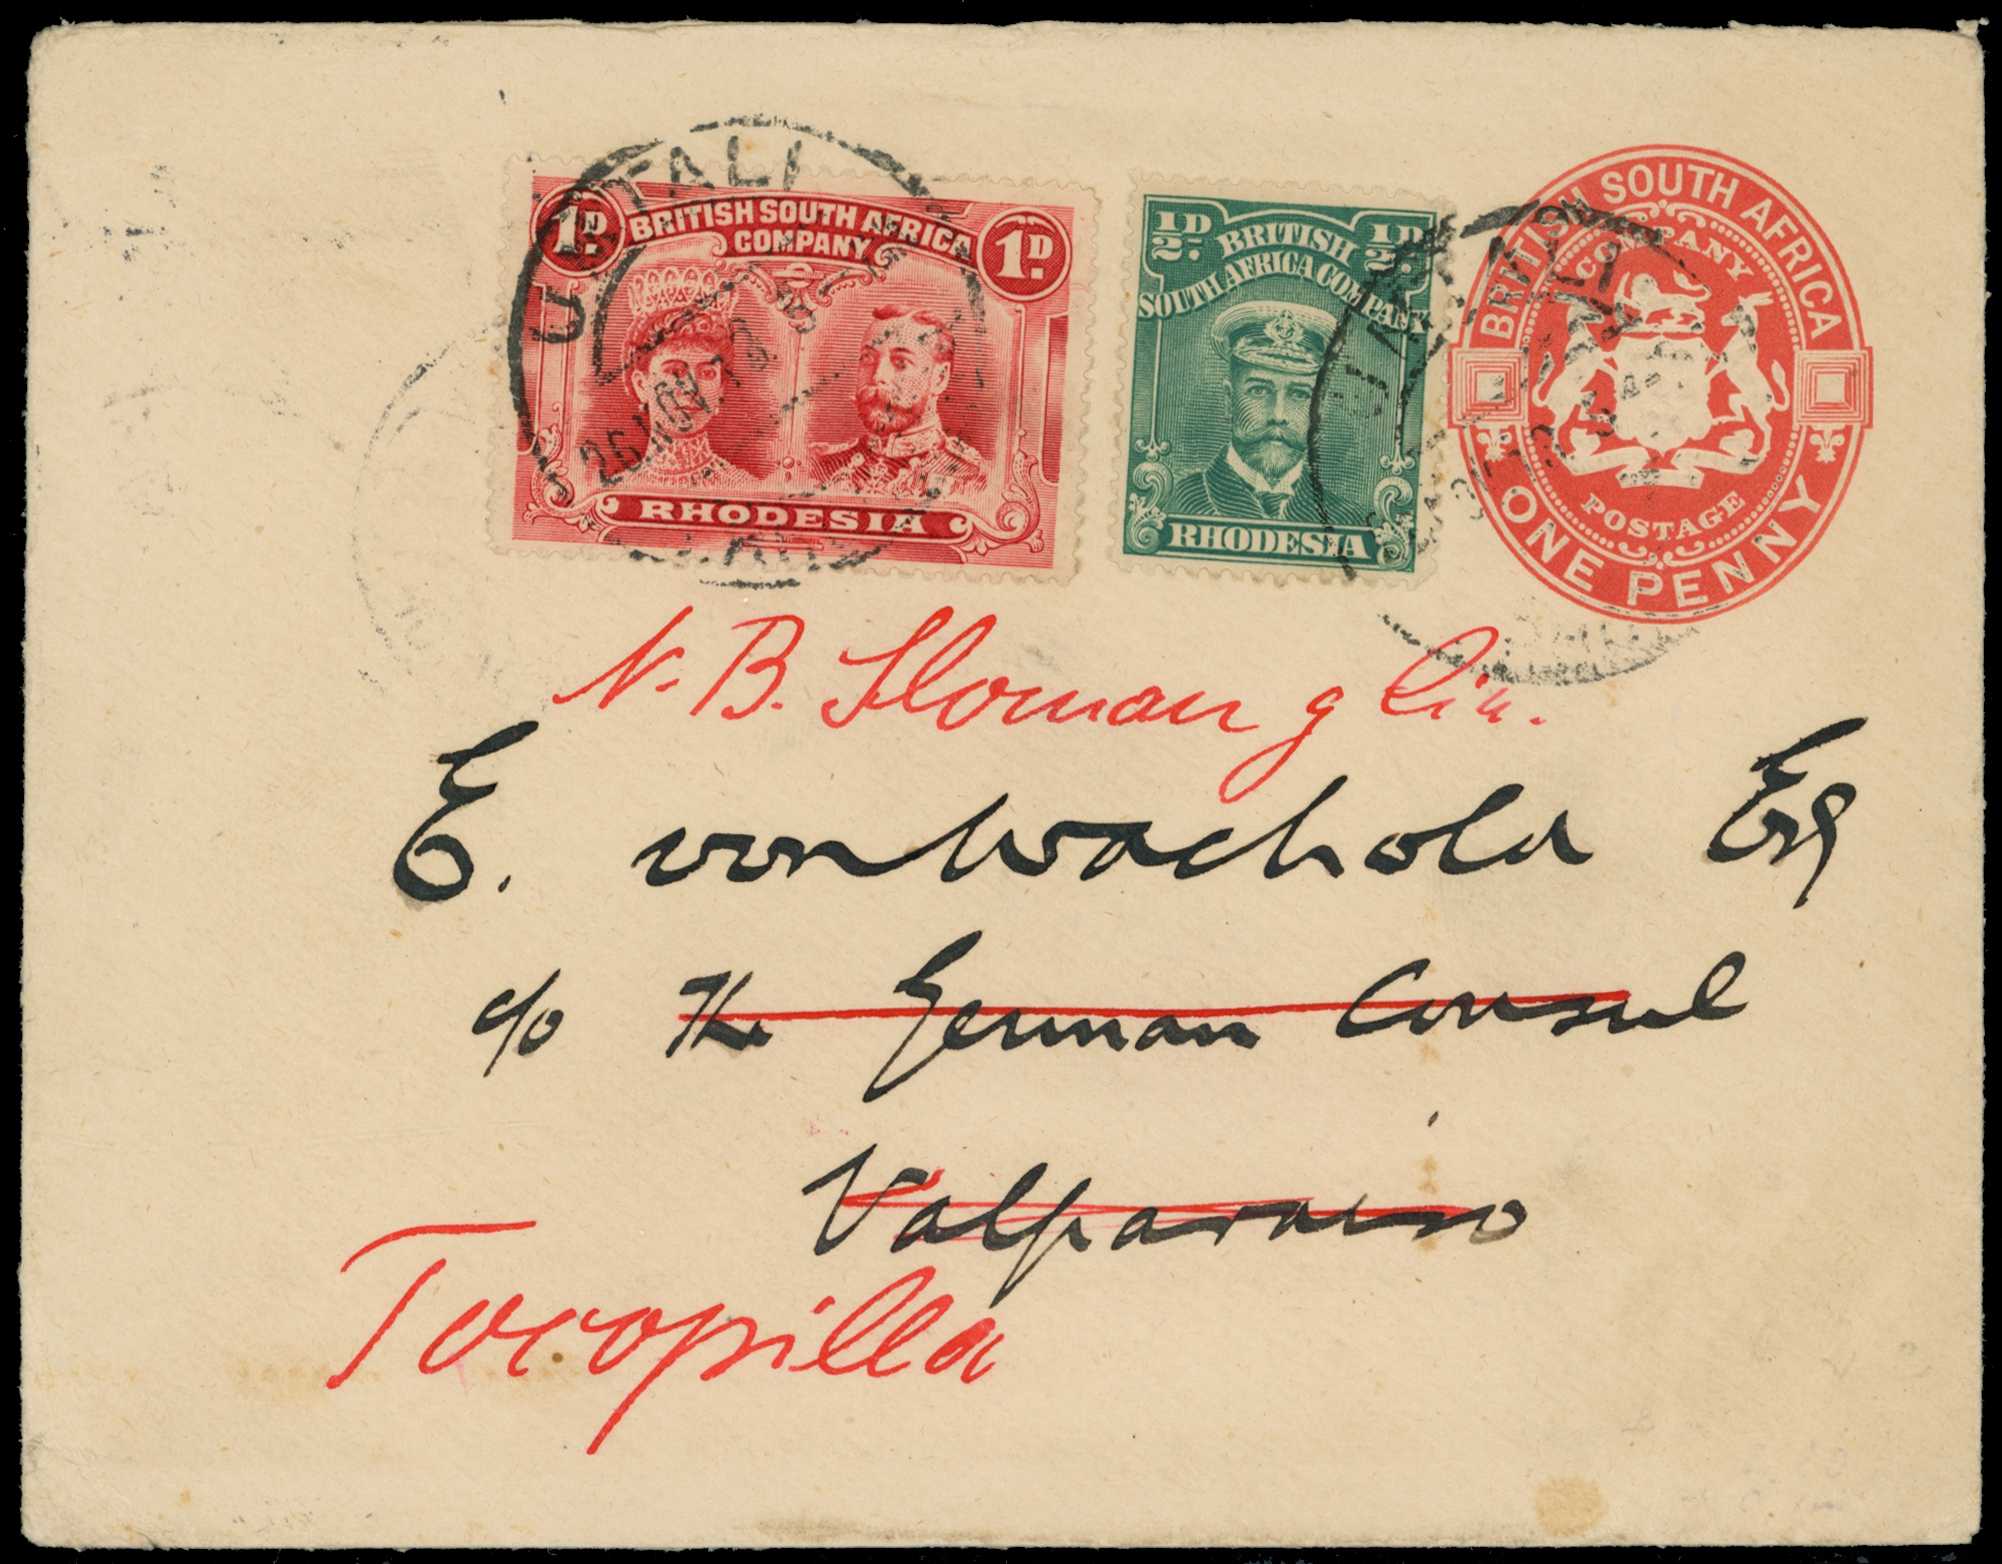 UMTALI
26 NOV 13
1D. BRITISH SOUTH AFRICA COMPANY 1D.
RHODESIA
½D. BRITISH ½D.
SOUTH AFRICA COMPANY
RHODESIA
BRITISH SOUTH AFRICA
COMPANY
POSTAGE
ONE PENNY
N. B. Sloman
E. von Wachold Esq
c/o The German Consul
Valparaiso
Tocopilla